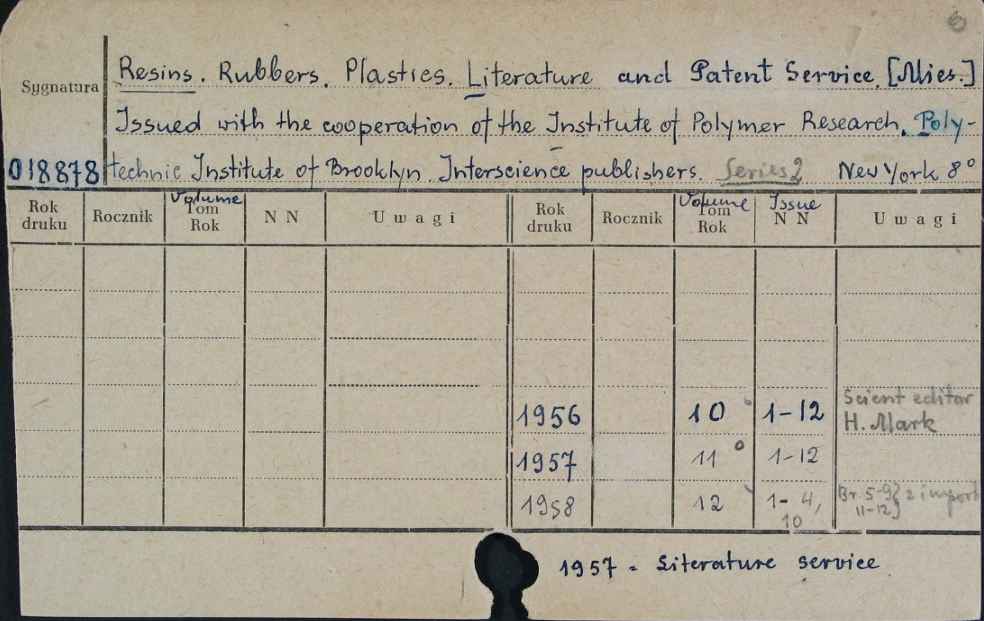 6
Sygnatura
Resins. Rubbers. Plastics. Literature and Patent Service. [Mies.]
Issued with the cooperation of the Institute of Polymer Research, Poly-
018878 technic Institute of Brooklyn. Interscience publishers. Series 2 New York 8°
Rok druku Rocznik Volume Tom Rok N N Uwagi Rok druku Rocznik Volume Tom Rok Issue N N Uwagi
Scient editor
1956 10 1-12 H. Mark
1957 11 1-12
1958 12 1-4, 10 Br. 5-9 11-12} z import
1957 - Literature service